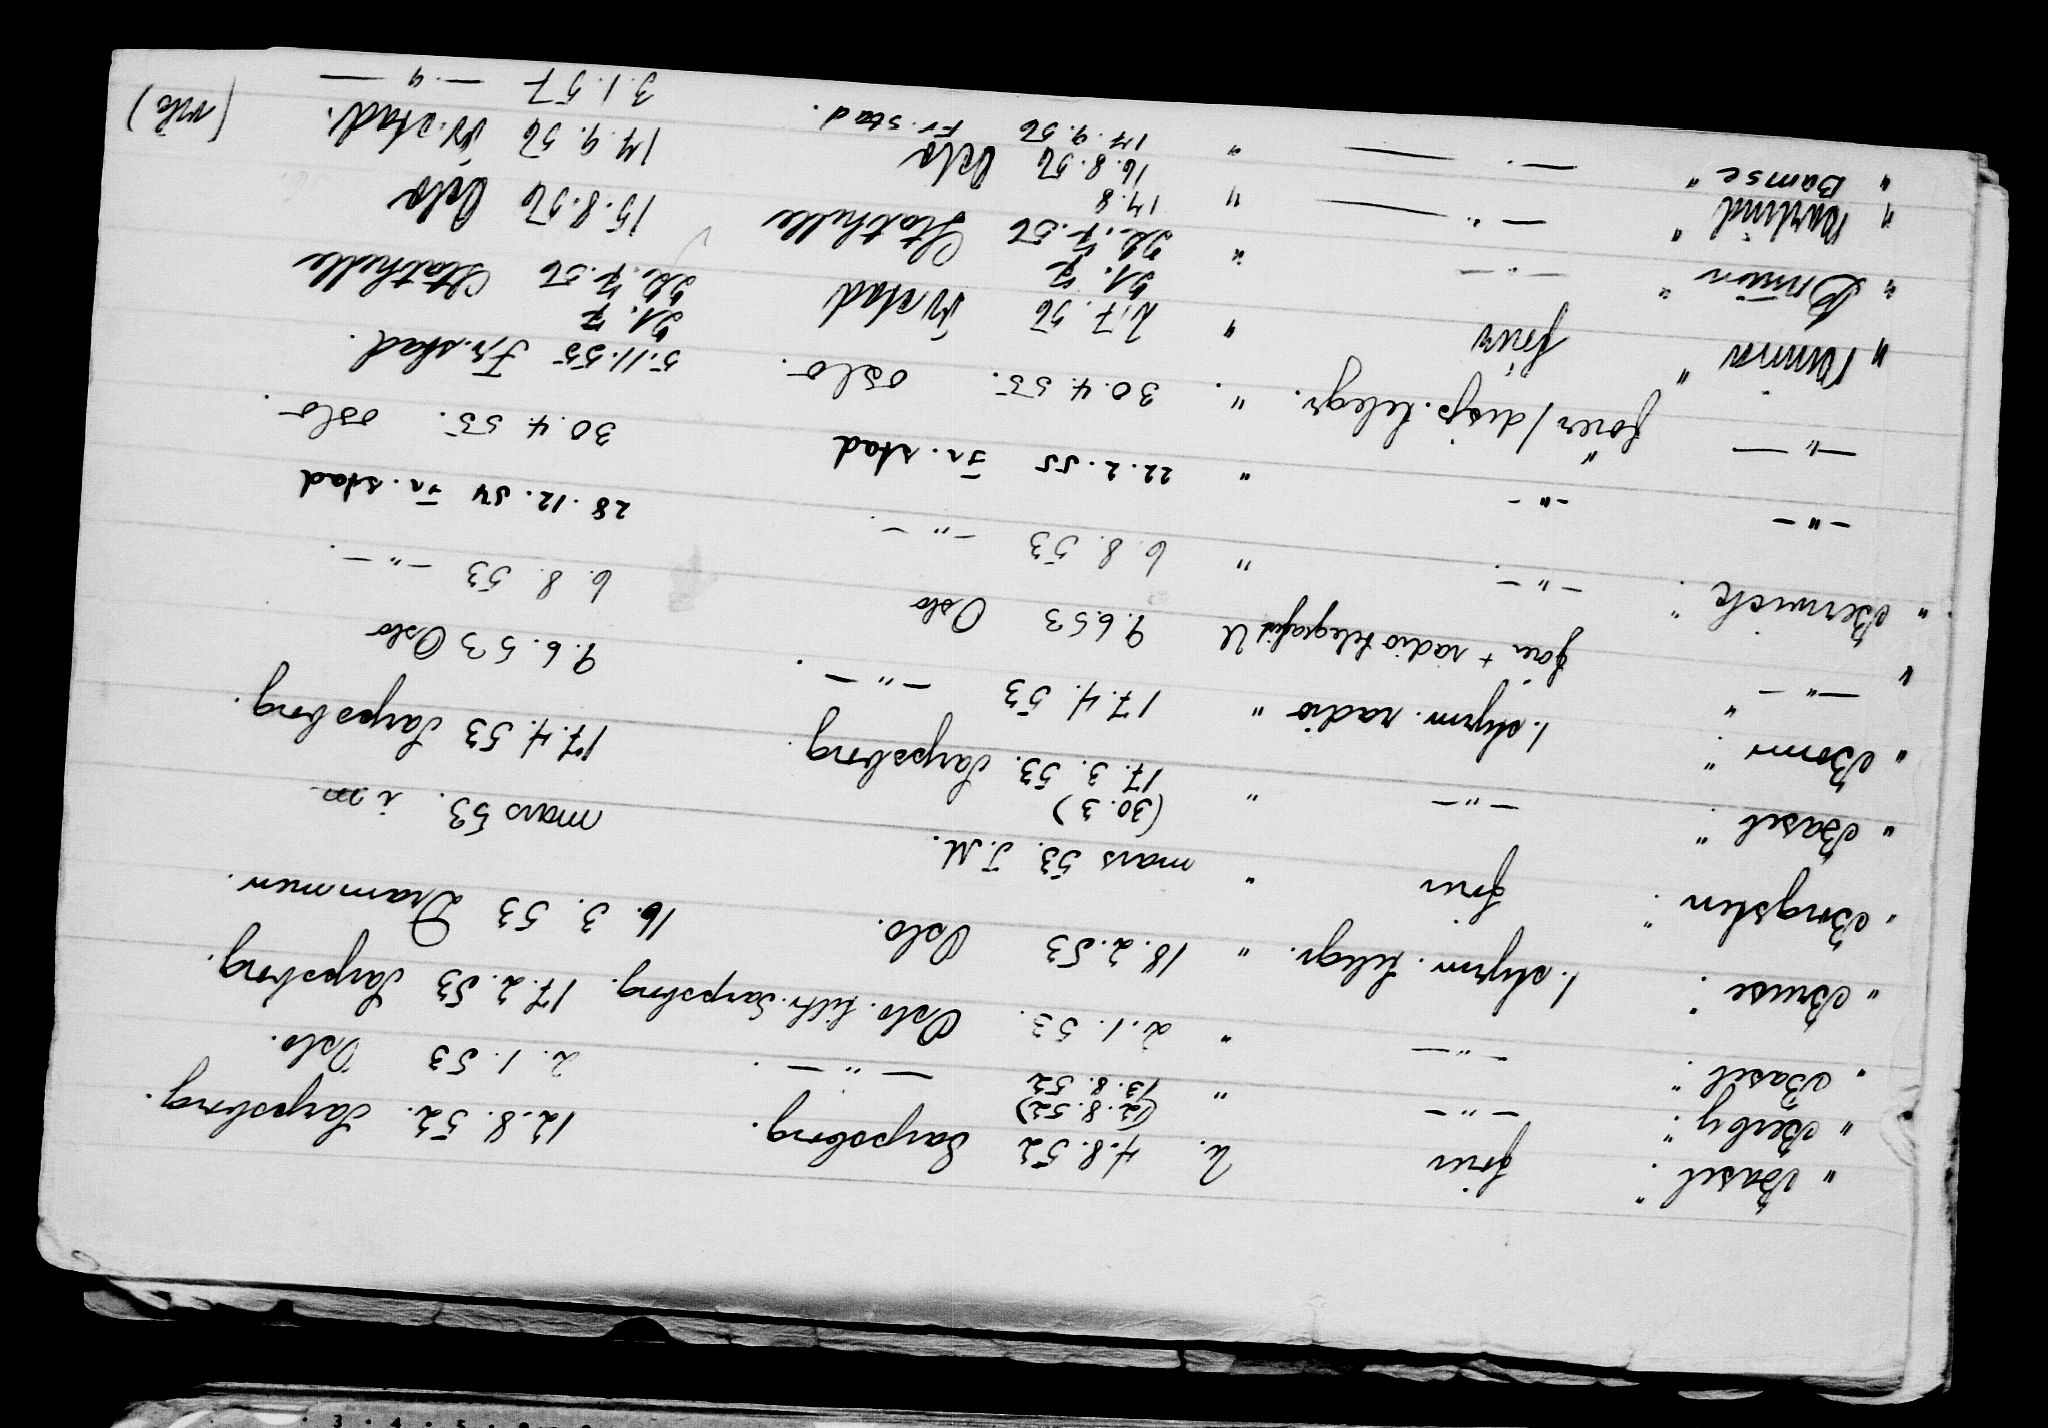 "Basel". fører U. 4.8.52 Sarpsborg. 12.8.52. Sarpsborg.
(12.8.52)
"Berby". -"- " 13.8.52 -"-. 2.1.53 Oslo.
"Basel". -"- " 2.1.53. Oslo. tiltr. Sarpsborg. 17.2.53 Sarpsborg.
"Bruse". 1. styrm. telegr. " 18.2.53 Oslo. 16.3.53 Drammen.
"Borgsten". fører " mars 53. T.M. mars 53.
(30.3)
"Basel". -"- " 17.3.53. Sarpsborg. 17.4.53 Sarpsborg.
1. styrm. radio " 17.4.53 -"-. 9.6.53 Oslo
" -"- " fører + radiotelegrafist U 9.6.53 Oslo 6.8.53 -"-.
"Berwick". -"-. " 6.8.53 -"-. 28.12.54 Fr.stad
-"- -"- " 22.2.55 Fr.stad 30.4.55. oslo.
-"- fører/disp.telegr. " 30.4.55. oslo. 5.11.55 Fr.stad.
fører " 2.7.56 Fr.stad 21.7
22.7.56 Stathelle
-"- " 21.7
22.7.56 Stathelle 15.8.56 Oslo
-"- " 17.8
16.8.56 Oslo 17.9.56 Fr.stad.
"Bamse" -"- " 17.9.56 Fr.stad. 3.1.57 -"-